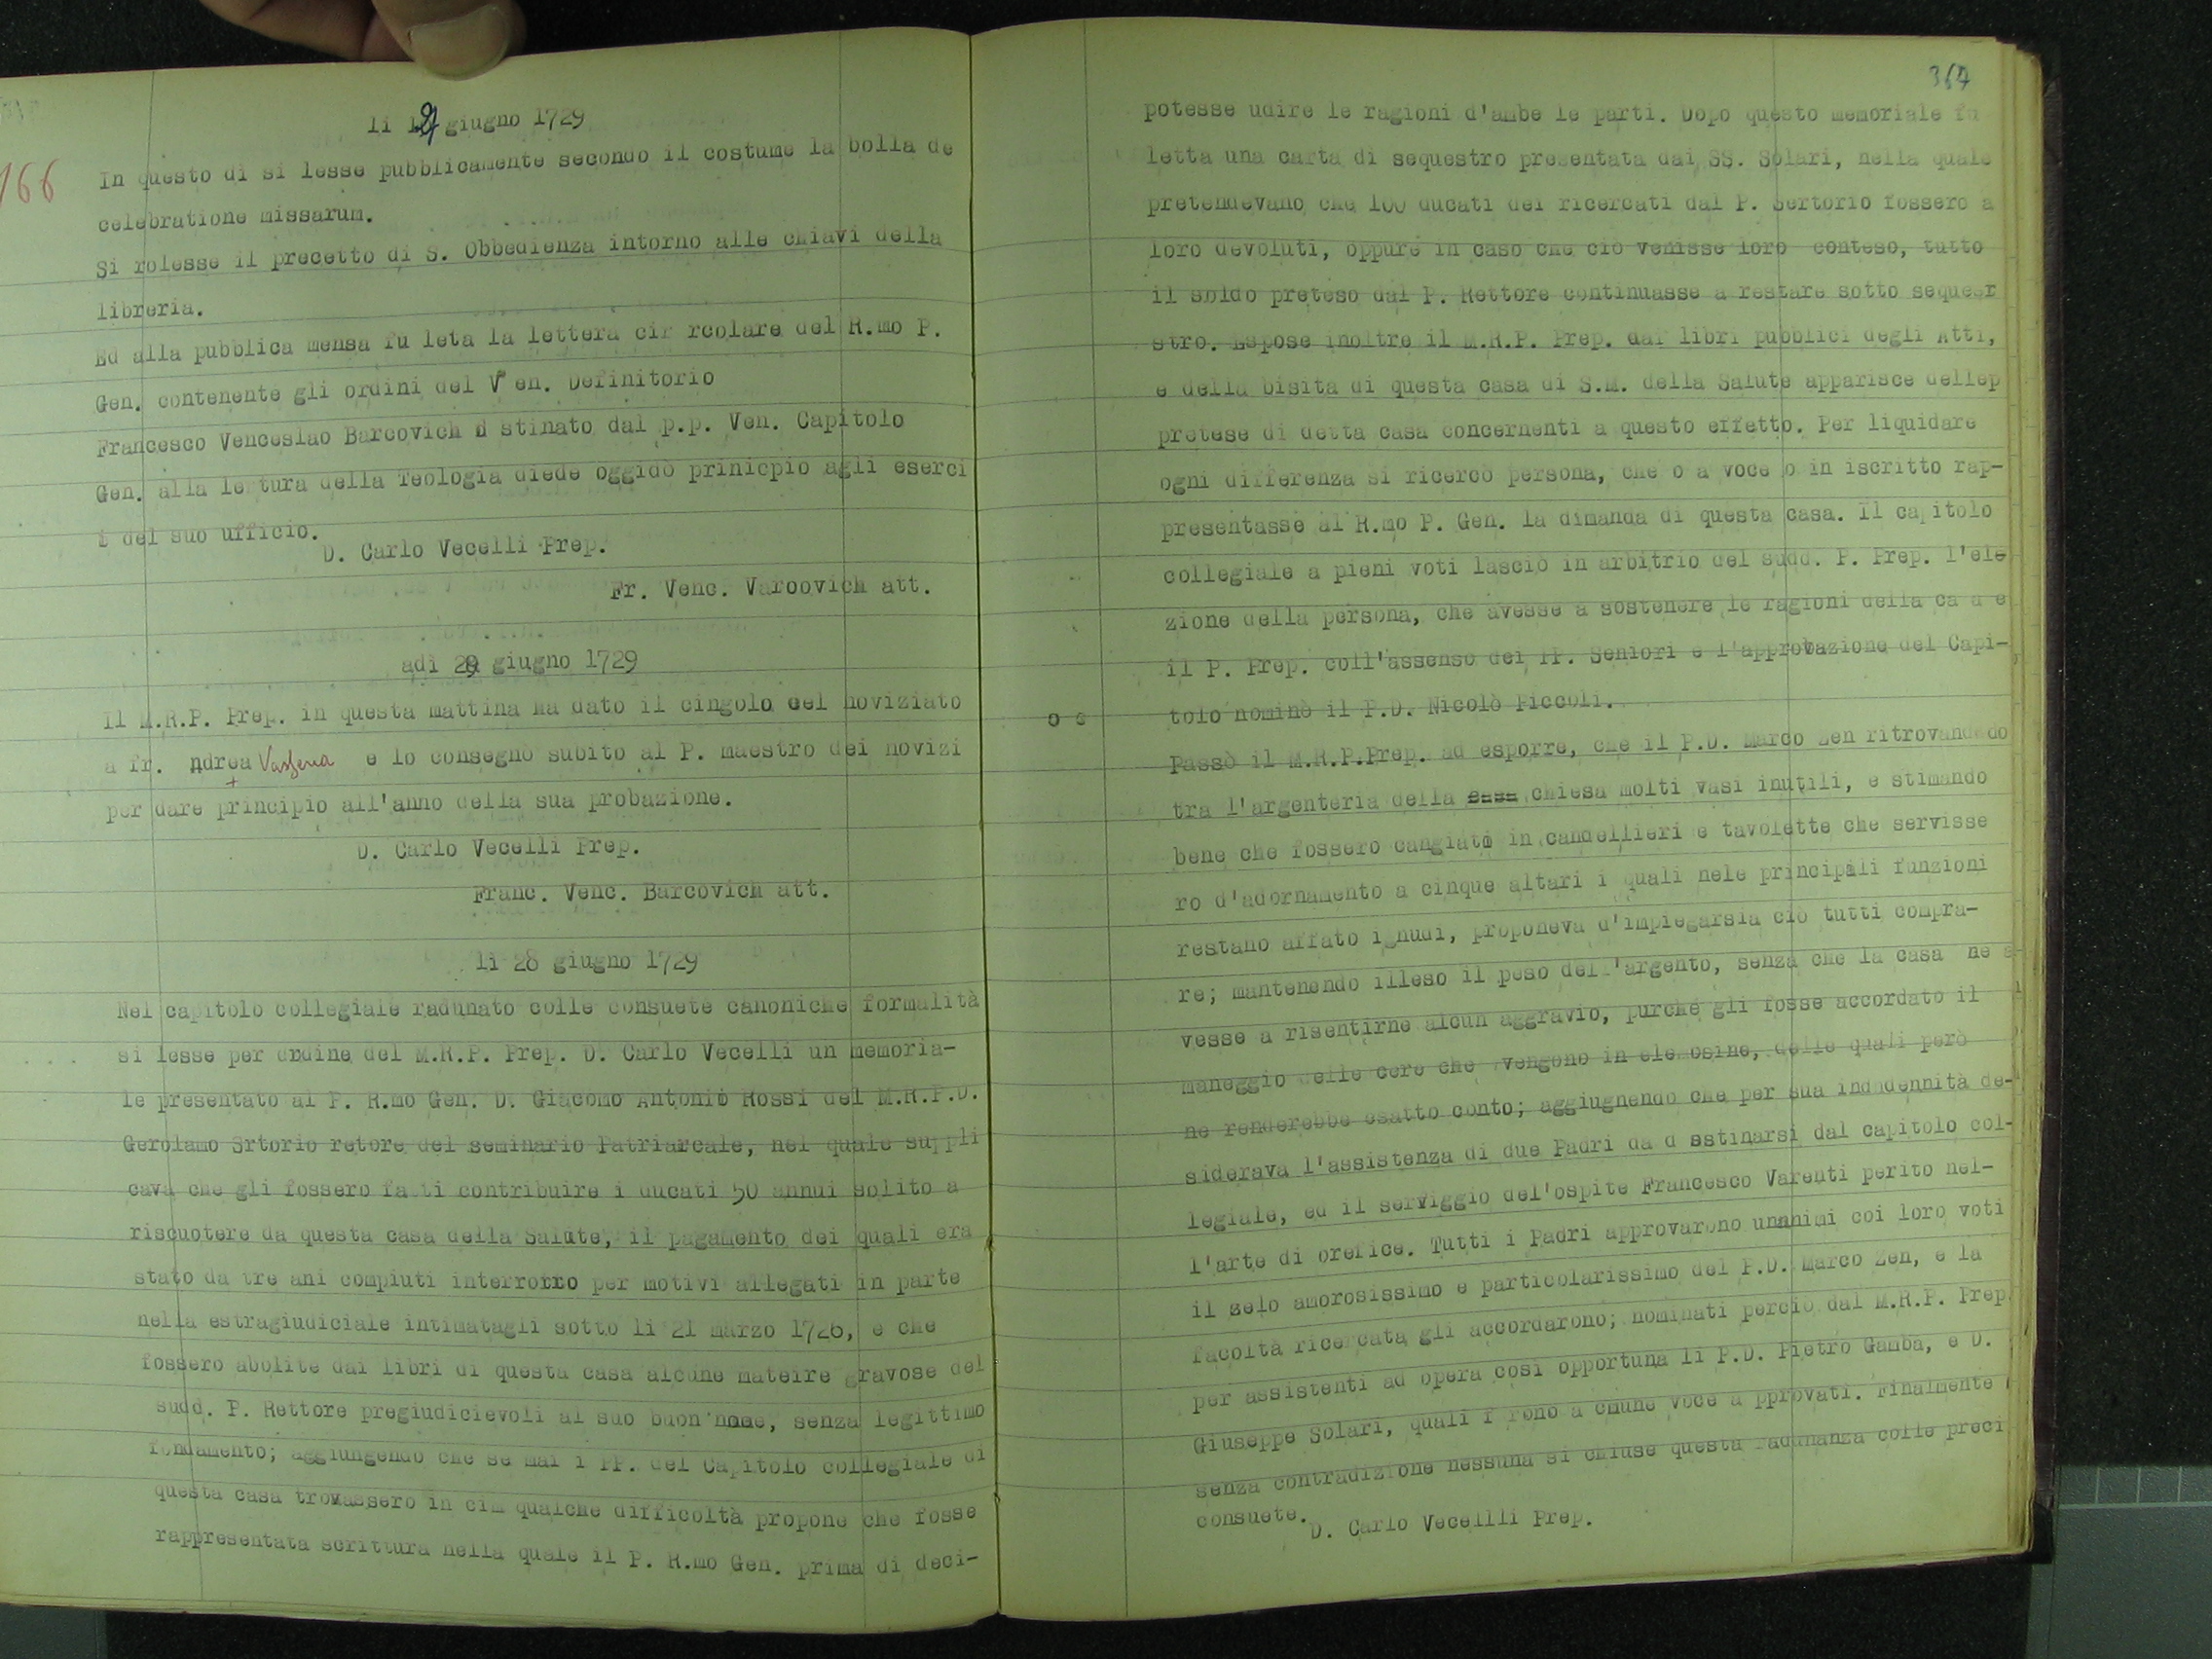 li 12 giugno 1729
166
In questo dì si lesse pubblicamente secondo il costume la bolla de
celebratione missarum.
Si rolesse il precetto di S. Obbedienza intorno alle chiavi della
libreria.
Ed alla pubblica mensa fu leta la lettera cir rcolare del R.mo P.
Gen. contenente gli ordini del V en. Definitorio
Francesco Venceslao Barcovich d stinato dal p.p. Ven. Capitolo
Gen. alla lettura della Teologia diede oggidò prinicpio agli eserci
i del suo ufficio.
D. Carlo Vecelli Prep.
Fr. Venc. Varcovich att.
adì 29 giugno 1729
Il M.R.P. Prep. in questa mattina ha dato il cingolo del noviziato
a fr. Andrea Vassena e lo consegnò subito al P. maestro dei novizi
per dare principio all'anno della sua probazione.
D. Carlo Vecelli Prep.
Franc. Venc. Barcovich att.
li 28 giugno 1729
Nel capitolo collegiale radunato colle consuete canoniche formalità
si lesse per ordine del M.R.P. Prep. D. Carlo Vecelli un memoria-
le presentato al P. R.mo Gen. D. Giacomo Antonio Rossi del M.R.P.D.
Gerolamo Srtorio retore del seminario Patriarcale, nel quale suppli
cava che gli fossero fatti contribuire i ducati 50 annui solito a
riscuotere da questa casa della Salute, il pagamento dei quali era
stato da tre ani compiuti interrotto per motivi allegati in parte
nella estragiudiciale intimatagli sotto li 21 marzo 1726, e che
fossero abolite dai libri di questa casa alcune mateire gravose del
sudd. P. Rettore pregiudicievoli al suo buon nome, senza legittimo
fondamento; aggiungendo che se mai i PP. del Capitolo collegiale di
questa casa trovassero in cim qualche difficoltà propone che fosse
rappresentata scrittura nella quale il P. R.mo Gen. prima di deci-
364
potesse udire le ragioni d'ambe le parti. Dopo questo memoriale fu
letta una carta di sequestro presentata dai SS. Solari, nella quale
pretendevano che 100 ducati dei ricercati dal P. Sertorio fossero a
loro devoluti, oppure in caso che ciò venisse loro conteso, tutto
il soldo preteso dal P. Rettore continuasse a restare sotto sequesr
stro. Espose inoltre il M.R.P. Prep. dai libri pubblici degli Atti,
e della bisita di questa casa di S.M. della Salute apparisce dellep
pretese di detta casa concernenti a questo effetto. Per liquidare
ogni differenza si ricercò persona, che o a voce o in iscritto rap-
presentasse al R.mo P. Gen. la dimanda di questa casa. Il capitolo
collegiale a pieni voti lasciò in arbitrio del sudd. P. Prep. l'ele
zione della persona, che avesse a sostenere le ragioni della ca a e
il P. Prep. coll'assenso dei PP. Seniori e l'approvazione del Capi-
tolo nominò il P.D. Nicolò Piccoli.
Passò il M.R.P.Prep. ad esporre, che il P.D. Marco Zen ritrovandodo
tra l'argenteria della casa chiesa molti vasi inutili, e stimando
bene che fossero cangiati in candellieri e tavolette che servisse
ro d'adornamento a cinque altari i quali nele principali funzioni
restano affato ignudi, proponeva d'impiegarsia ciò tutti compra-
re; mantenendo illeso il peso dell'argento, senza che la casa ne a
vesse a risentirne alcun aggravio, purchè gli fosse accordato il
maneggio delle cere che vengono in elemosine, delle quali però
ne renderebbe esatto conto; aggiugnendo che per sua indndennità de-
siderava l'assistenza di due Padri da d estinarsi dal capitolo col-
legiale, ed il serviggio del'ospite Francesco Varenti perito nel-
l'arte di orefice. Tutti i Padri approvarono unanimi coi loro voti
il zelo amorosissimo e particolarissimo del P.D. Marco Zen, e la
facoltà ricercata gli accordarono; nominati perciò dal M.R.P. Prep.
per assistenti ad opera così opportuna li P.D. Pietro Gamba, e D.
Giuseppe Solari, quali f rono a cmune voce a pprovati. Finalmente
senza contradizione nessuna si chiuse questa radunanza colle preci
consuete.
D. Carlo Vecellli Prep.